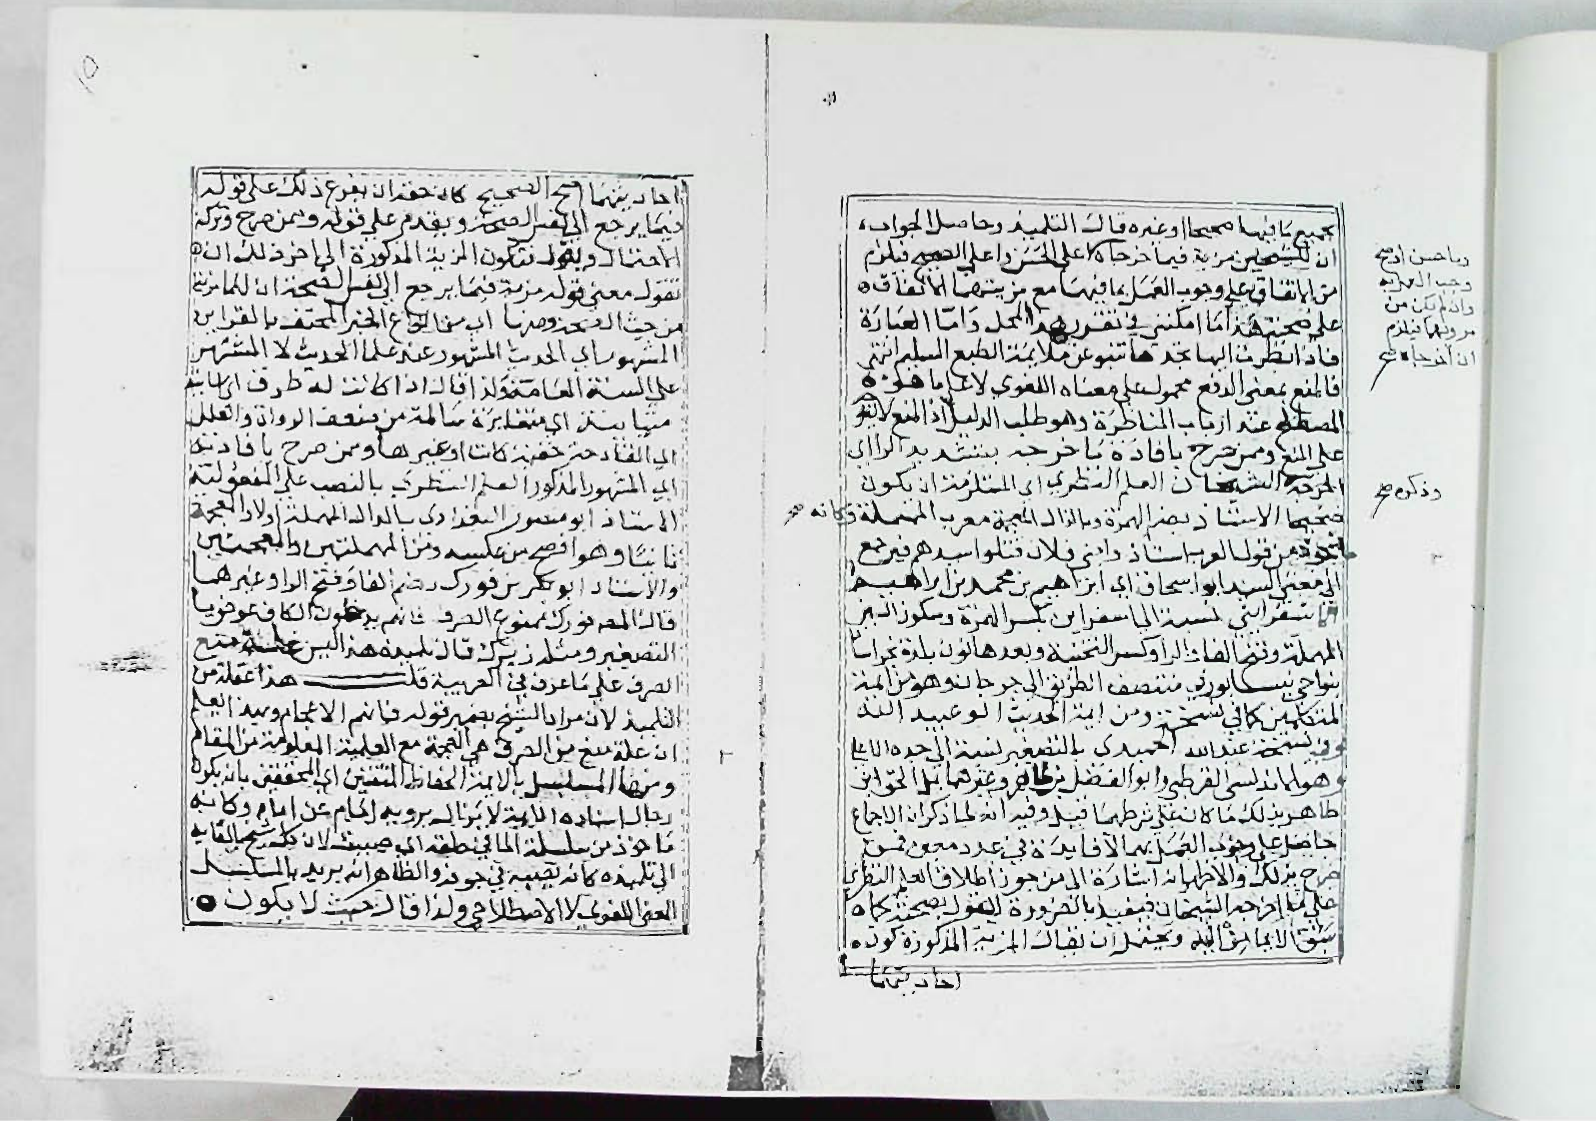 بجميع ما فيهما صحيحا او غيره قال التلميذ وحاصل الجواب
ان للشيخين مزية فيما خرجاه على الحسن او على الصحيح فيلزم
من الاتفاق على وجوب العمل بما فيهما مع مزيتهما الاتفاق
على صحته هذا ما امكنني في تقرير هذا المحل واما العبارة
فاذا نظرت اليها تجدها تنبو عن ملايمة الطبع السليم انتهى
فالمنع بمعنى الدفع محمول على معناه اللغوي لا على ما هو
المصطلح عند ارباب المناظرة وهو طلب الدليل اذ المنع لا
على المنع وممن صرح بافادة ما خرجه بتشديد الراء اي
اخرجه الشيخان العلم النظري اي المستلزمة ان يكون
صحيحا الاستاذ بضم الهمزة وبالذال المعجمة معرب المهملة وكانه
من قول العرب استاذ وابني فلان قتلوا سيدهم فيرجع
الى معنى السيد ابو اسحاق اي ابراهيم بن محمد بن ابراهيم
الاسفرايني نسبة الى اسفراين بكسر الهمزة وسكون السين
المهملة وفتح الفاء والراء وكسر التحتية وبعدها نون بلدة بخراسان
بنواحي نيسابور في منتصف الطريق الى جرجان وهو من ائمة
المتكلمين كما في نسخة ومن ائمة الحديث ابو عبيد الله
وفي نسخة عبد الله الحميدي بالتصغير نسبة الى جده الاعلى
وهو الاندلسي القرطبي وابو الفضل بن طاهر وغيرهما قبل الحق ان
ظاهر ذلك ما كان على شرطهما قيل وفيه انه لما ذكر ان الاجماع
حاصل على وجوب العمل بهما لا فايدة في عدد معين فمن
صرح بذلك والاظهر انه اشارة الى من جوز اطلاق العلم النظري
على ما اخرجه الشيخان فيفيد بالضرورة القول بصحته كما
سبق الايماء اليه ويحتمل ان يقال المزية المذكورة كون
احاديثهما
وجب العمل به
وان لم يكن من
مرويهما فيلزم
ان اخرجاه صح
وذكره صح
احاديثهما اصح الصحيح كان حقه ان يفرع ذلك على قوله
فيما يرجع الى نفس الصحة ويقدم على قوله وممن صرح وتركه
الاحتمال ويقول فتكون المزية المذكورة الى اخر ذلك ان
تقول معنى قوله مزية فيما يرجع الى نفس الصحة ان لهما مزية
من حيث الصحة ومنها اي من انواع الخبر المحتف بالقراين
المشهور اي الحديث المشهور عند علماء الحديث لا المشتهر
على السنة العامة ولذا قال اذا كانت له طرق اي اسانيد
متباينة اي متغايرة سالمة من ضعف الرواة والعلل
اي القادحة خفية كانت او غيرها وممن صرح بافادته
اي المشهور المذكور العلم النظري بالنصب على المفعولية
الاستاذ ابو منصور البغدادي بالدال المهملة اولا والمعجمة
ثانيا وهو افصح من عكسه ومن المهملتين والمعجمتين
والاستاذ ابو بكر بن فورك بضم الفاء وفتح الراء وغيرهما
قال المص فورك ممنوع الصرف فانهم يدخلون الكاف عوض ياء
التصغير ومثله زيرك قال تلميذه هذا ليس علة منع
الصرف على ما عرف في العربية قلت هذا غفلة من
التلميذ لان مراد الشيخ بضمير قوله فانهم الاعجام وبهذا يعلم
ان علة منع من الصرف هي العجمة مع العلمية المعلومة من المقام
ومنها المسلسل بالائمة الحفاظ المتقنين اي المحققين بان يكون
رجال اسناده الايمة لا يزال يرويه امام عن امام وكانه
ماخوذ من سلسلة الماء في حلقه اي صببت لان كل شيخ بالقايه
الى تلميذه كانه يصبه في جوفه والظاهر انه يريد بالمسلسل
المعنى اللغوي لا الاصطلاحي ولذا قال حيث لا يكون